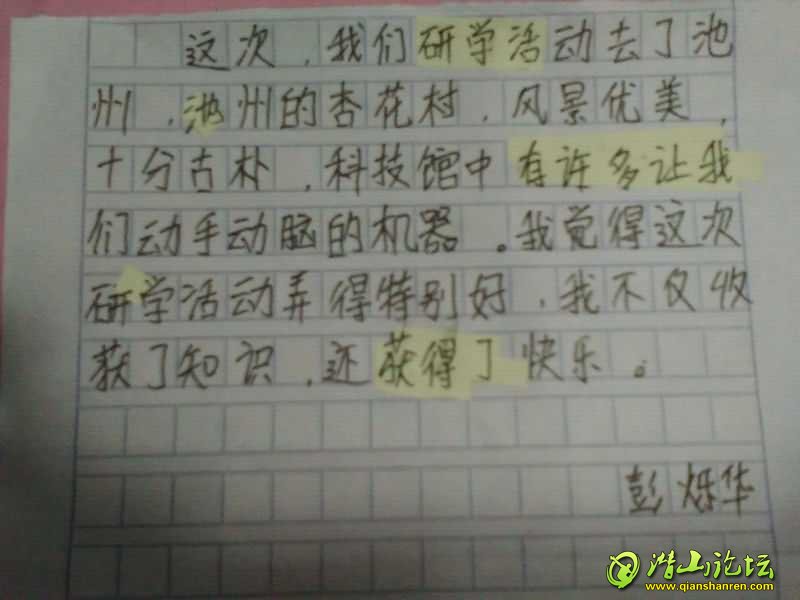 这次，我们研学活动去了池
州，池州的杏花村，风景优美，
十分古朴，科技馆中有许多让我
们动手动脑的机器。我觉得这次
研学活动弄得特别好，我不仅收
获了知识，还获得了快乐。
彭烁华
潜山论坛
www.qianshanren.com